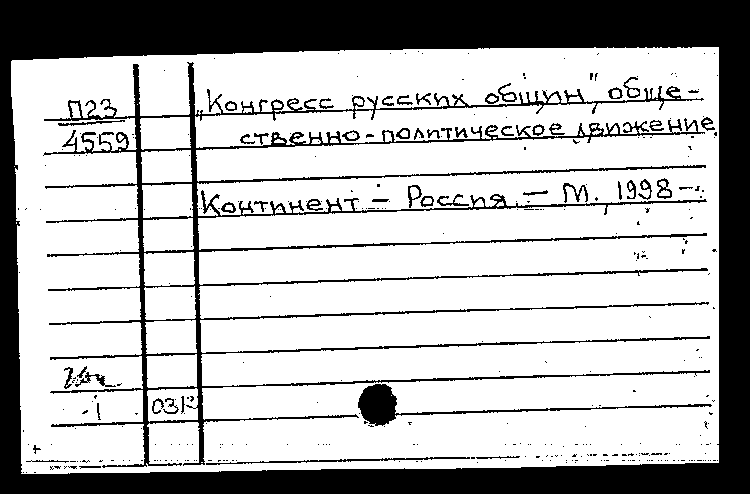 П23
4559
„Конгресс русских общин", обще-
ственно-политическое движение
Континент - Россия. - М., 1998 -